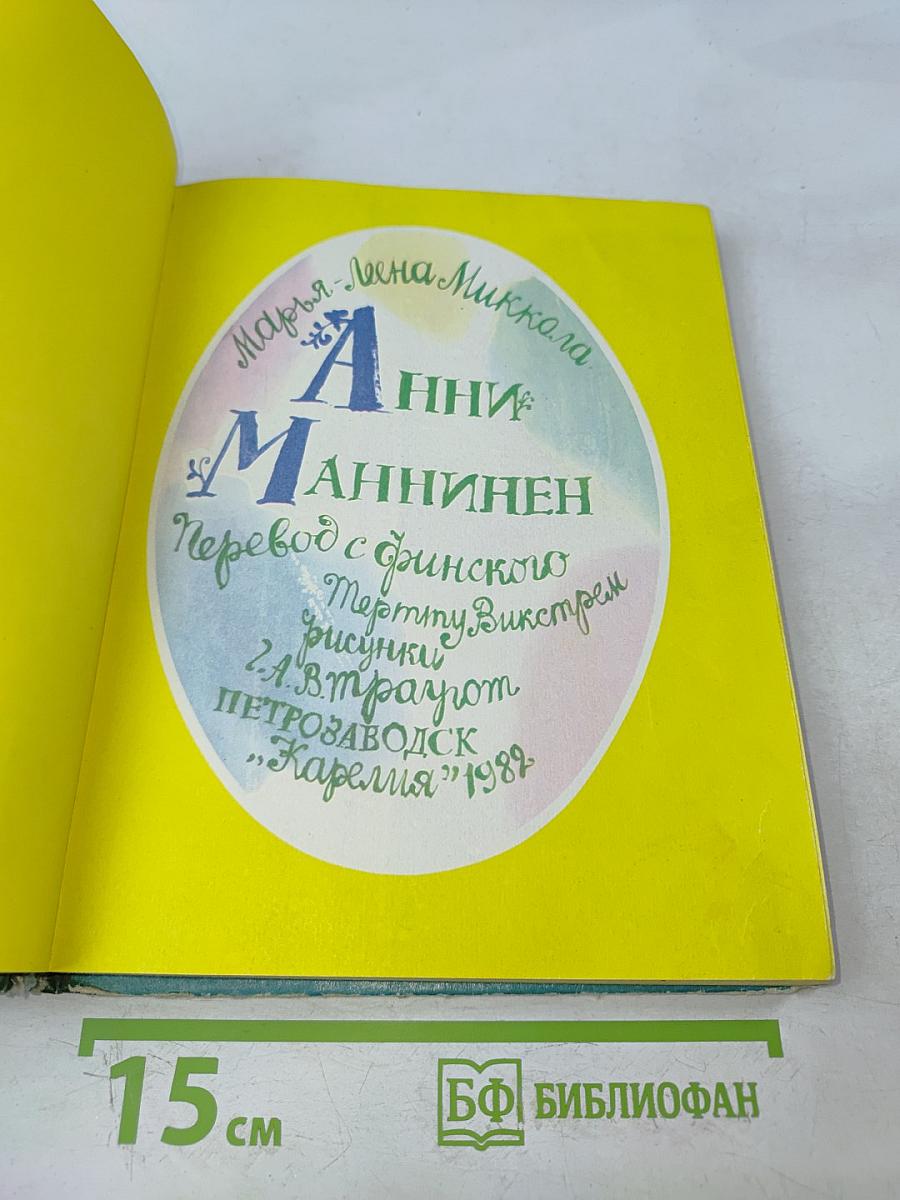 Марья-Леена Миккола
Анни
Маннинен
Перевод с финского
Тертту Викстрем
рисунки
Г.А.В. Траугот
ПЕТРОЗАВОДСК
„Карелия” 1982
15 см
БФ БИБЛИОФАН